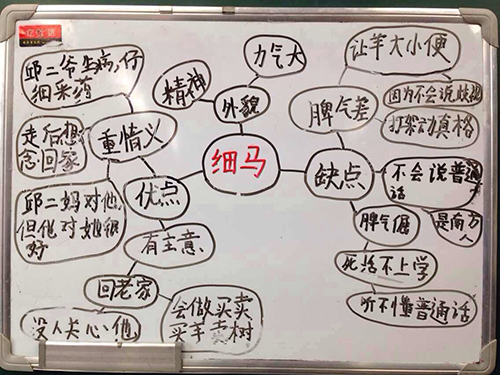 力气大
精神
外貌
细马
邱二爷生病,仔
细米药
重情义
走后想
念回家
邱二妈对他
但他对她很
好
优点
有主意
回老家
没人关心他
会做买卖
买羊卖树
缺点
脾气差
让羊大小便
因为不会说歧视
打架动真格
不会说普通
话
是南方
人
脾气倔
死活不上学
听不懂普通话